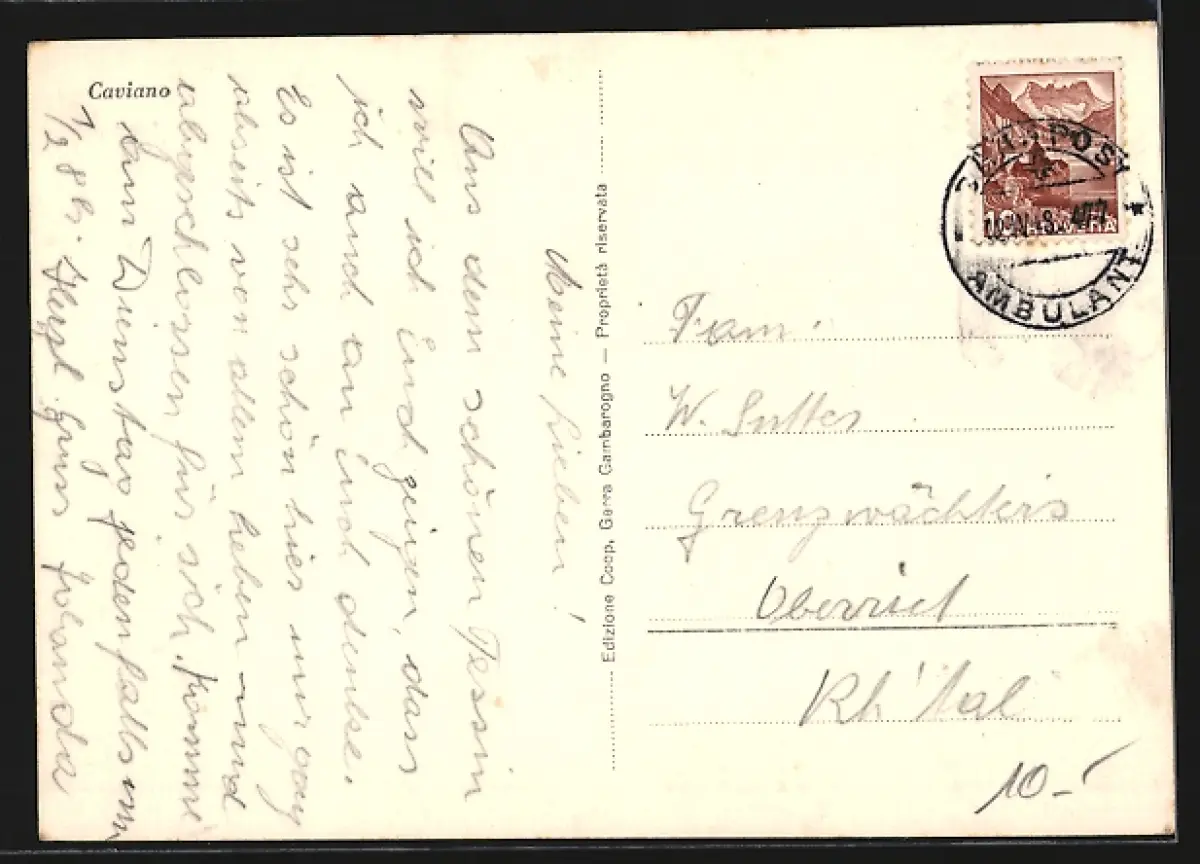 Caviano
Meine Lieben!
Aus dem schönen Tessin
will ich Euch zeigen, dass
ich auch an Euch denke.
Es ist sehr schön hier nur ganz
abseits von allem Leben und
abgeschlossen für sich. Komme
am Dienstag jedenfalls um
1/2 8 Uhr. Herzl. Gruss Johanda
Edizione Coop, Gerra Gambarogno — Proprietà riservata
BAHNPOST
AMBULANT
HELVETIA
Fam.
W. Sutter
Grenzwächters
Oberriet
Rh'tal
10.-